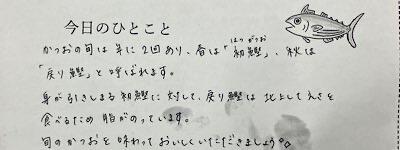 今日のひとこと
かつおの旬は年に2回あり、春は「初鰹」、秋は
「戻り鰹」と呼ばれます。
身が引きしまる初鰹に対して、戻り鰹は北上してえさを
食べるため脂がのっています。
旬のかつおを味わっておいしくいただきましょう。